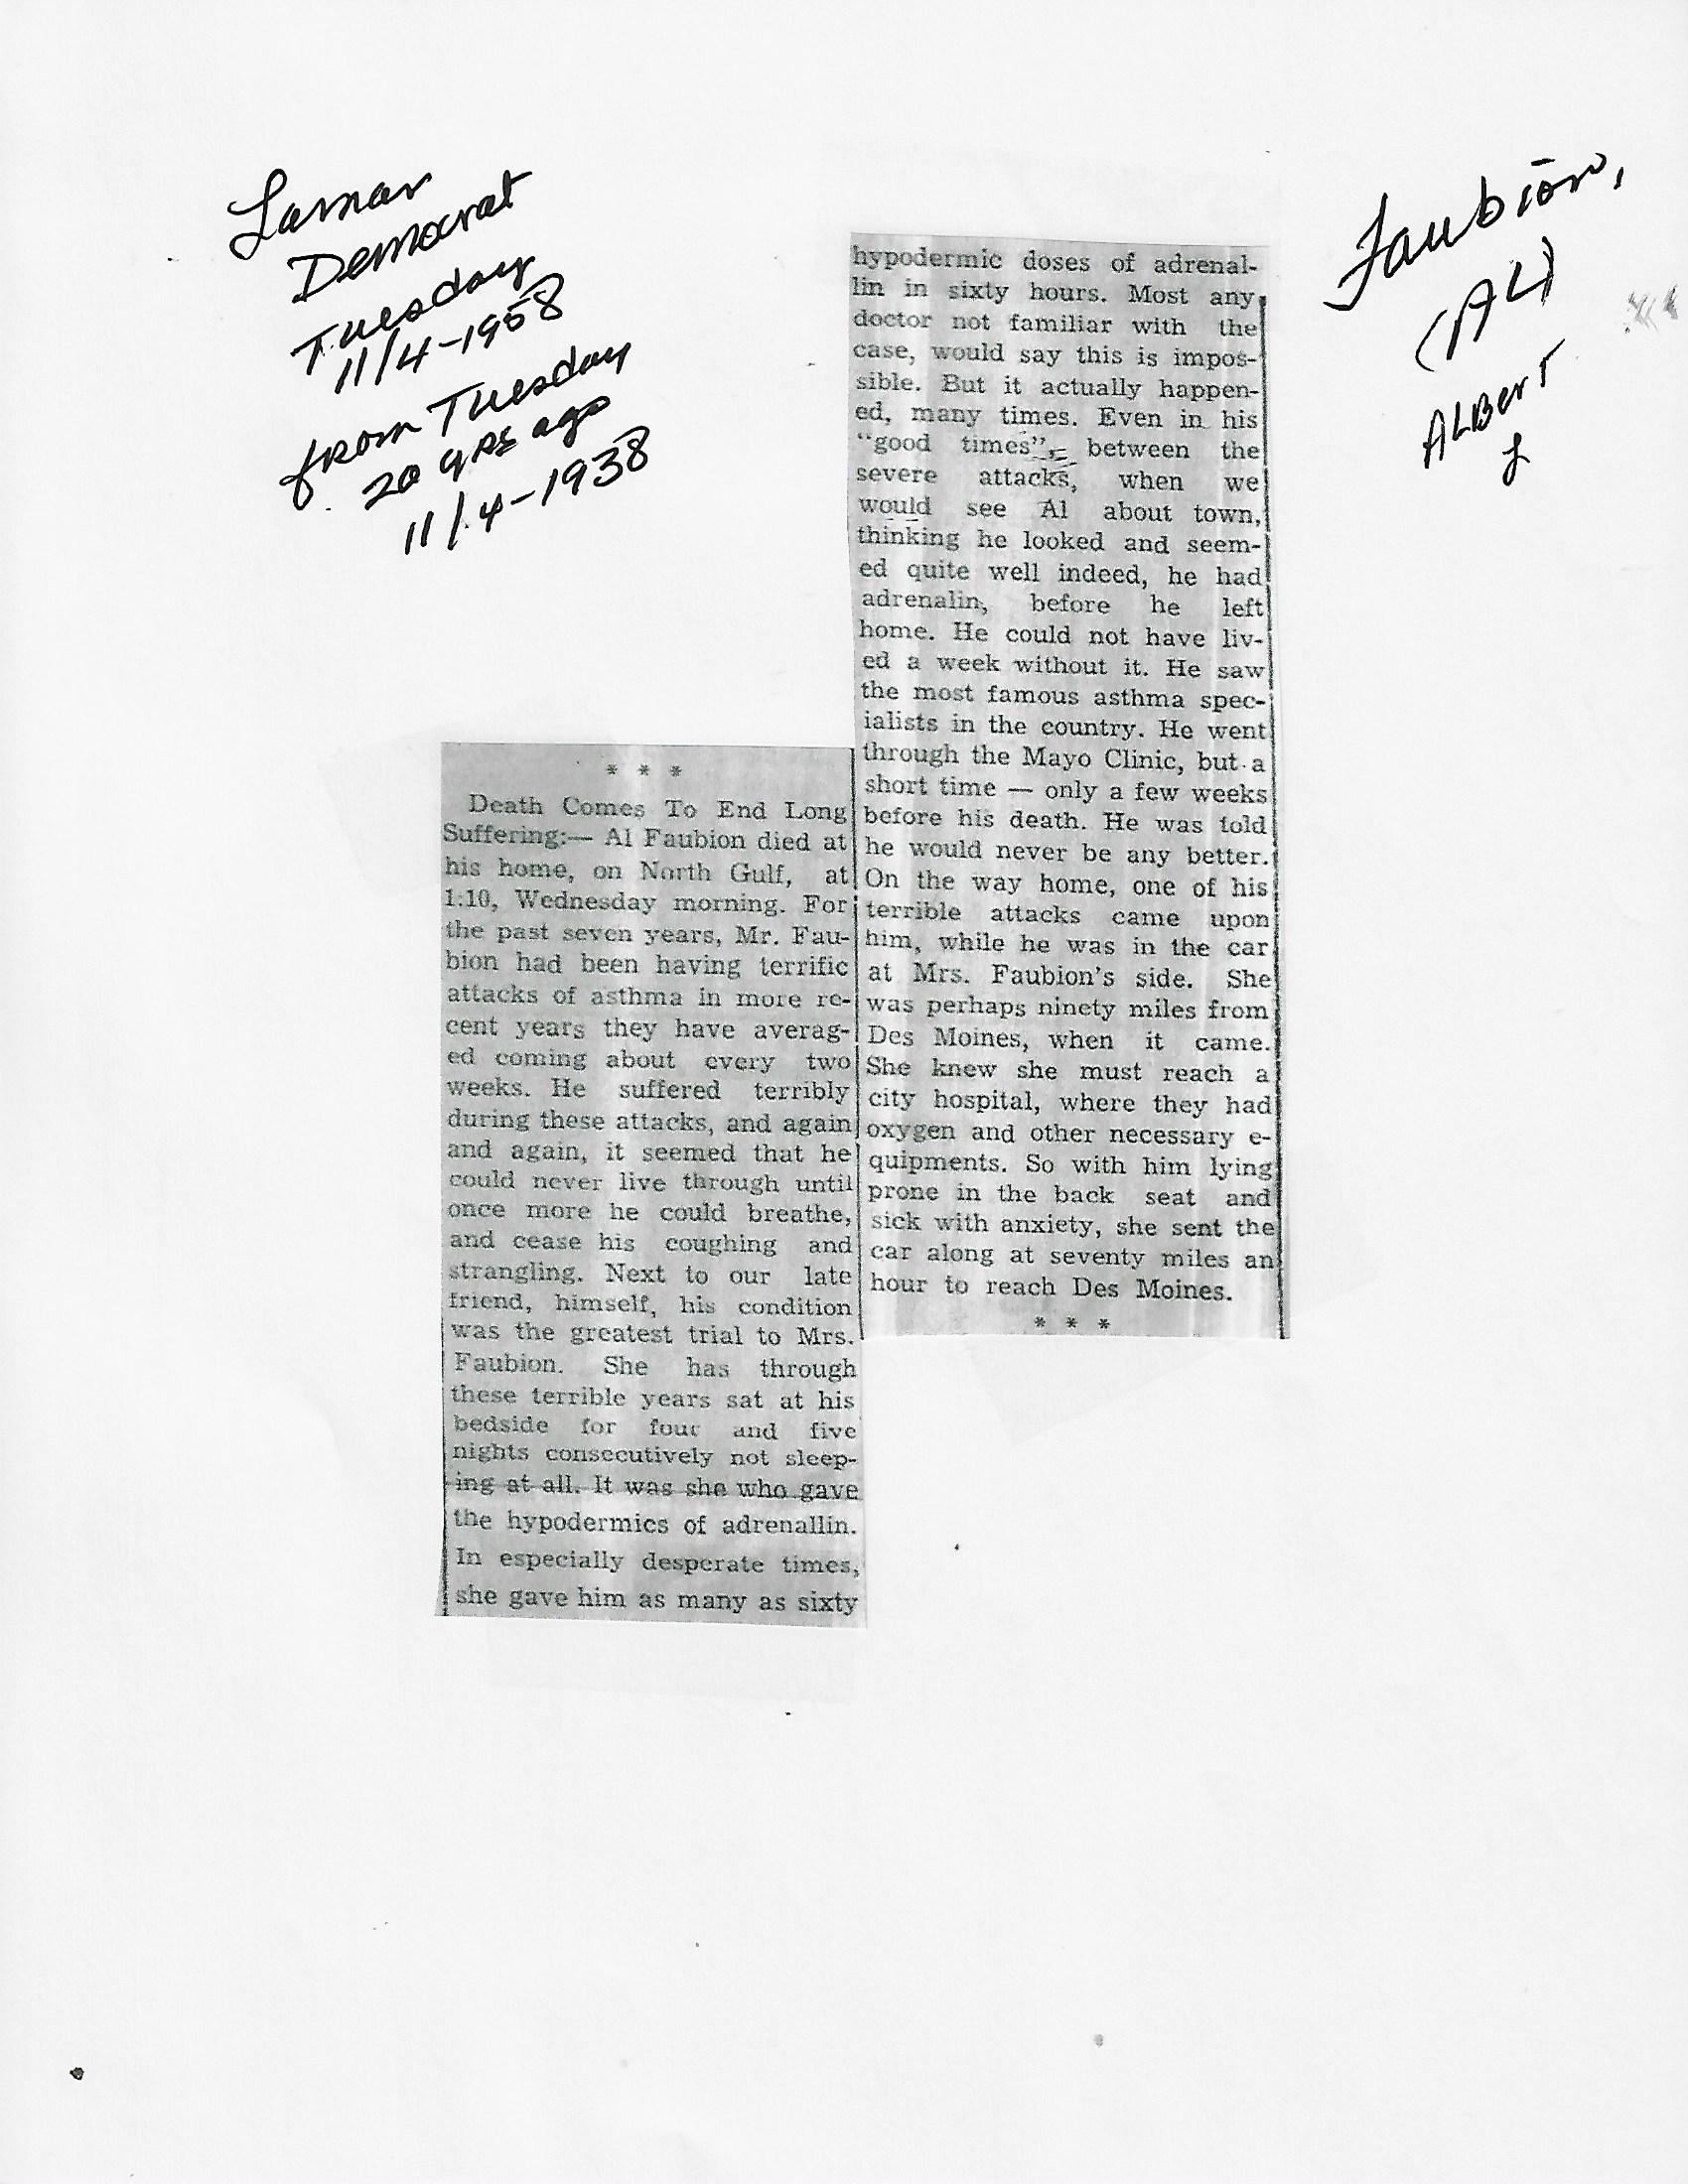 Lamar
Democrat
Tuesday
11/4-1958
from Tuesday
20 yrs ago
11/4-1938
Faubion,
(AL)
ALBerT
L
* * *
Death Comes To End Long
Suffering:— Al Faubion died at
his home, on North Gulf, at
1:10, Wednesday morning. For
the past seven years, Mr. Fau-
bion had been having terrific
attacks of asthma in more re-
cent years they have averag-
ed coming about every two
weeks. He suffered terribly
during these attacks, and again
and again, it seemed that he
could never live through until
once more he could breathe,
and cease his coughing and
strangling. Next to our late
friend, himself, his condition
was the greatest trial to Mrs.
Faubion. She has through
these terrible years sat at his
bedside for four and five
nights consecutively not sleep-
ing at all. It was she who gave
the hypodermics of adrenallin.
In especially desperate times,
she gave him as many as sixty
hypodermic doses of adrenal-
lin in sixty hours. Most any
doctor not familiar with the
case, would say this is impos-
sible. But it actually happen-
ed, many times. Even in his
"good times", between the
severe attacks, when we
would see Al about town,
thinking he looked and seem-
ed quite well indeed, he had
adrenalin, before he left
home. He could not have liv-
ed a week without it. He saw
the most famous asthma spec-
ialists in the country. He went
through the Mayo Clinic, but a
short time — only a few weeks
before his death. He was told
he would never be any better.
On the way home, one of his
terrible attacks came upon
him, while he was in the car
at Mrs. Faubion's side. She
was perhaps ninety miles from
Des Moines, when it came.
She knew she must reach a
city hospital, where they had
oxygen and other necessary e-
quipments. So with him lying
prone in the back seat and
sick with anxiety, she sent the
car along at seventy miles an
hour to reach Des Moines.
* * *